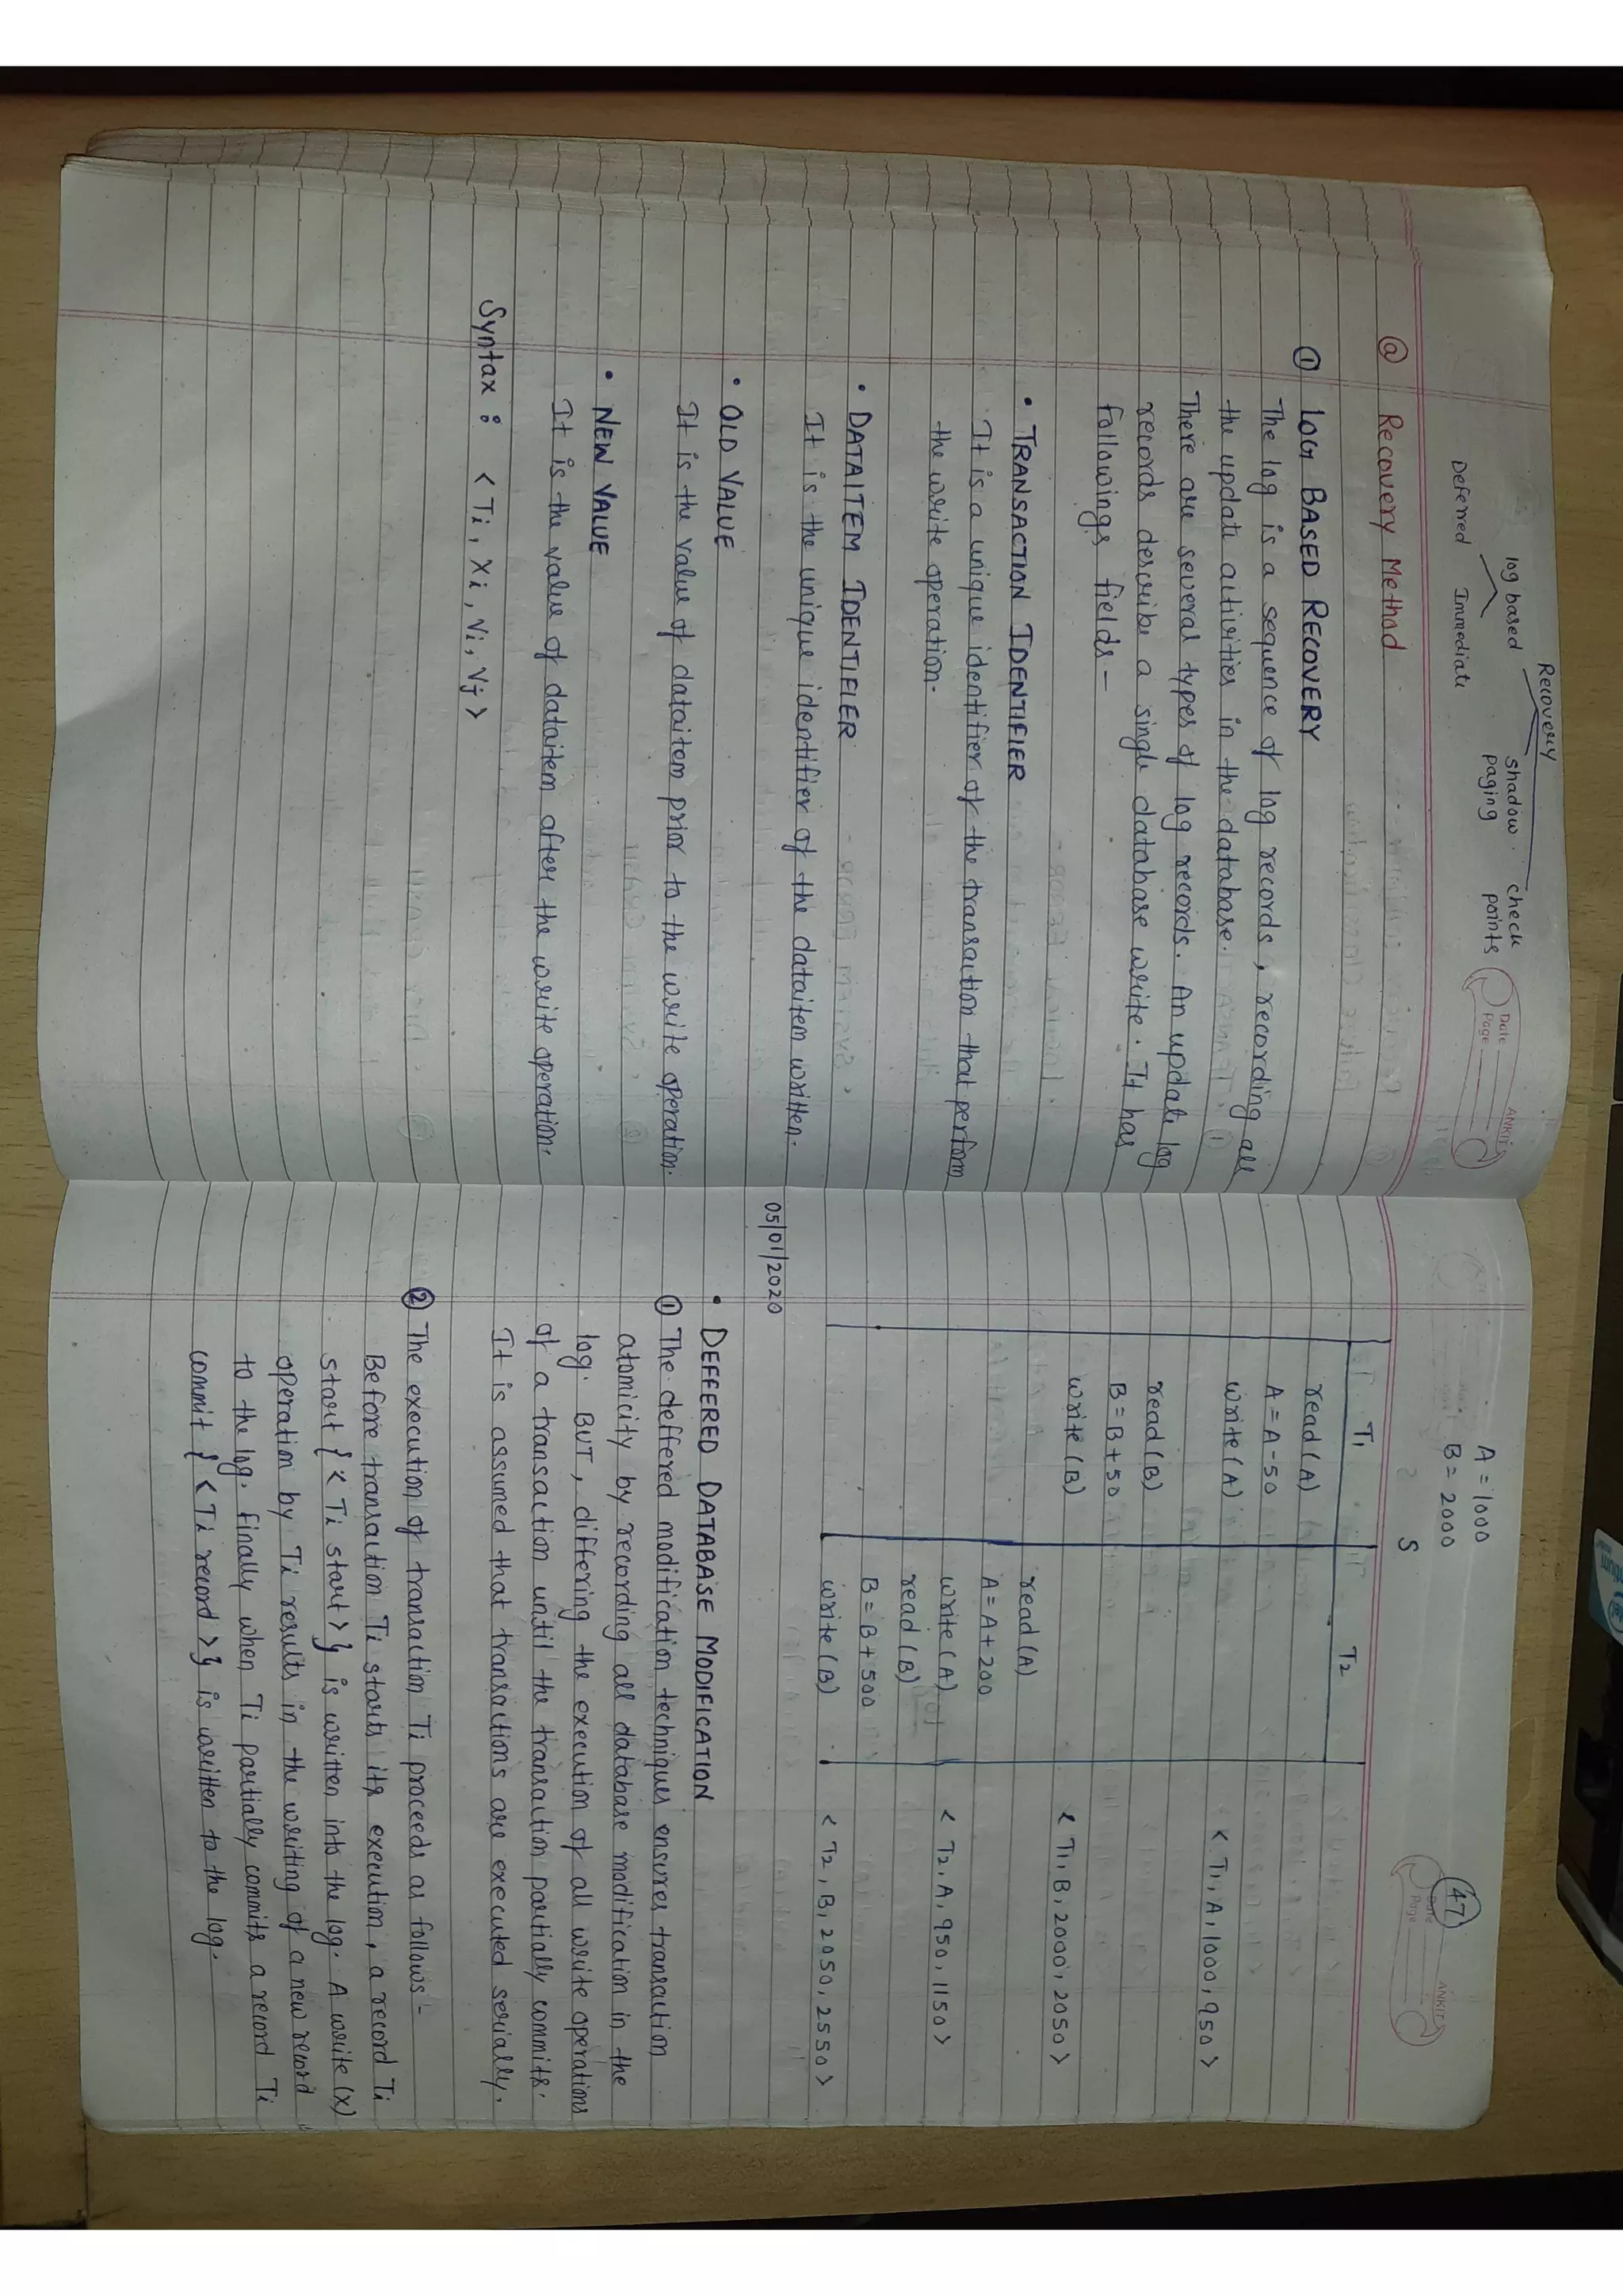 Recovery
log based   shadow paging   check points
Deferred   Immediate
Date
Page
ANKIT
@ Recovery Method
① LOG BASED RECOVERY
The log is a sequence of log records, recording all
the update activities in the database.
There are several types of log records. An update log
records describe a single database write. It has
followings fields-
• TRANSACTION IDENTIFIER
It is a unique identifier of the transaction that perform
the write operation.
• DATAITEM IDENTIFIER
It is the unique identifier of the dataitem written.
• OLD VALUE
It is the value of dataitem prior to the write operation.
• NEW VALUE
It is the value of dataitem after the write operation.
Syntax : < Ti, Xi, Vi, Vj >
A = 1000
B = 2000
S
47
Date
Page
ANKIT
T1   T2
read (A)
A = A - 50
write (A)   < T1, A, 1000, 950 >
read (B)
B = B + 50
write (B)   < T1, B, 2000, 2050 >
read (A)
A = A + 200
write (A)   < T2, A, 950, 1150 >
read (B)
B = B + 500
write (B)   < T2, B, 2050, 2550 >
05/01/2020
• DEFFERED DATABASE MODIFICATION
① The deffered modification techniques ensures transaction
atomicity by recording all database modification in the
log. BUT, differing the execution of all write operations
of a transaction until the transaction partially commits.
It is assumed that transactions are executed serially.
② The execution of transaction Ti proceeds as follows -
Before transaction Ti starts its execution, a record Ti
start { < Ti start > } is written into the log. A write (x)
operation by Ti results in the writing of a new record
to the log. finally when Ti partially commits a record Ti
commit { < Ti record > } is written to the log.